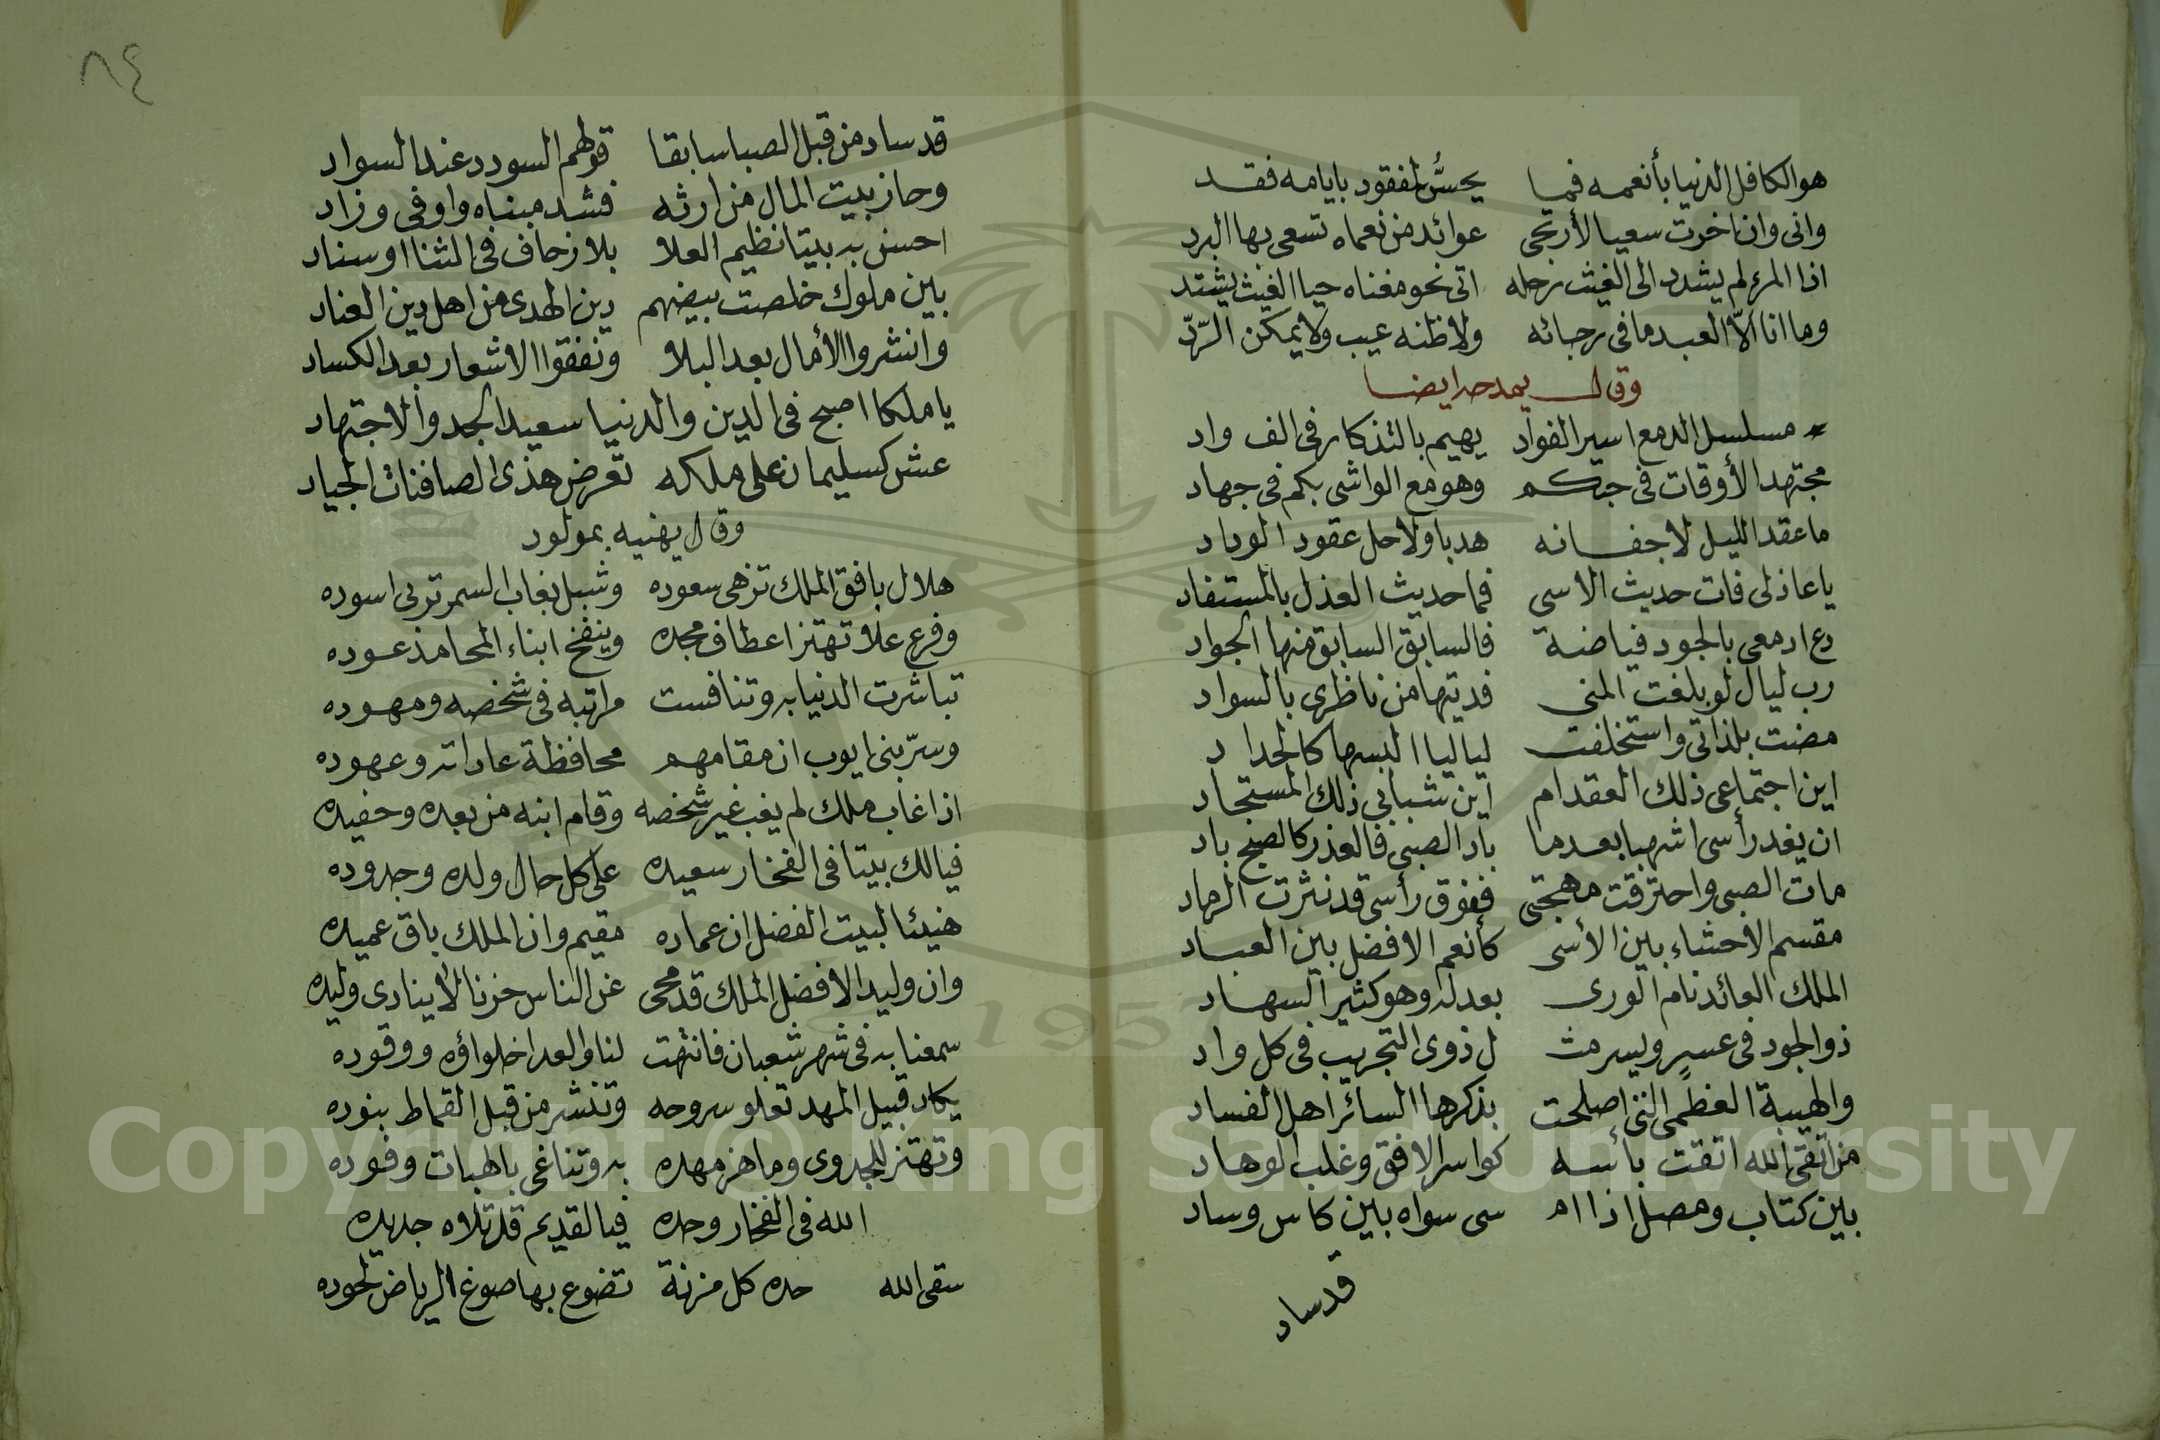 هو الكافل الدنيا بأنعمه فما يحسّ لمفقود بايامه فقد
وانى وان اخرت سعيا لأرتجى عوائد من نعماه تسعى بها البرد
اذا المرء لم يشدد الى الغيث رحله اتى نحو مغناه حيا الغيث يشتد
وما انا الّا العبد ما فى رجائه ولا ظنه عيب ولا يمكن الرّدّ
وقال يمدحه ايضا
مسلسل الدمع اسير الفواد يهيم بالتذكار فى الف واد
مجتهد الأوقات فى حبكم وهو مع الواشى بكم فى جهاد
ما عقد الليل لاجفانه هدبا ولا حل عقود الوداد
يا عاذلى فات حديث الاسى فما حديث العذل بالمستفاد
دع ادمعى بالجود فياضة فالسابق السابق منها الجواد
رب ليال لو بلغت المنى فديتها من ناظرى بالسواد
مضت بلذاتى واستخلفت لياليا البسها كالحداد
اين اجتماعى ذلك العقد ام اين شبابى ذلك المستجاد
ان يغد رأسى اشهبا بعد ما باد الصبى فالعذر كالصبح باد
مات الصبى واحترقت مهجتى ففوق رأسى قد نثرت الرماد
مقسم الاحشاء بين الأسى كأنعم الافضل بين العباد
الملك العائد نام الورى بعدله وهو كثير السهاد
ذو الجود فى عسر ويسر مث ل ذوى التجريب فى كل واد
والهيبة العظمى التى اصلحت بذكرها السائر اهل الفساد
من اتقى الله اتقت بأسه كواسر الافق وغلب الوهاد
بين كتاب ومصلى اذا ام سى سواه بين كاس وساد
قد ساد
٨٤
قد ساد من قبل الصبا سابقا قولهم السودد عند السواد
وحاز بيت المال من ارثه فشد مبناه واوفى وزاد
احسن به بيتا نظيم العلا بلا زحاف فى الثنا او سناد
بين ملوك خلصت بيضهم دين الهدى من اهل دين العناد
وانشروا الأمال بعد البلا ونفقوا الاشعار بعد الكساد
يا ملكا اصبح فى الدين والدنيا سعيد الجد والاجتهاد
عش كسليمان على ملكه تعرض هذى الصافنات الجياد
وقال يهنيه بمولود
هلال بافق الملك تزهى سعوده وشبل بغاب السمر تربى اسوده
وفرع علا تهتز اعطاف مجده وينفخ ابناء المحامد عوده
تباشرت الدنيا به وتنافست مراتبه فى شخصه ومهوده
وسرّ بنى ايوب ان مقامهم محافظة عاداته وعهوده
اذا غاب ملك لم يغب غير شخصه وقام ابنه من بعده وحفيده
فيالك بيتا فى الفخار سعيده على كل حال ولده وجدوده
هنيئا لبيت الفضل ان عماده مقيم وان الملك باق عميده
وان وليد الافضل الملك قد محى عن الناس حزنا لا ينادى وليده
سمعنا به فى شهر شعبان فانتهت لنا والعدا حلواؤه ووقوده
يكاد قبيل المهد تعلو سروجه وتنشر من قبل القماط بنوده
وتهتز للجدوى وما هز مهده به وتناغى بالهبات وفوده
الله فى الفخار وحده فيا لقديم قد تلاه جديده
سقى الله حده كل مزنة تضوع بها صوغ الرياض لحوده
Copyright © King Saud University
1957